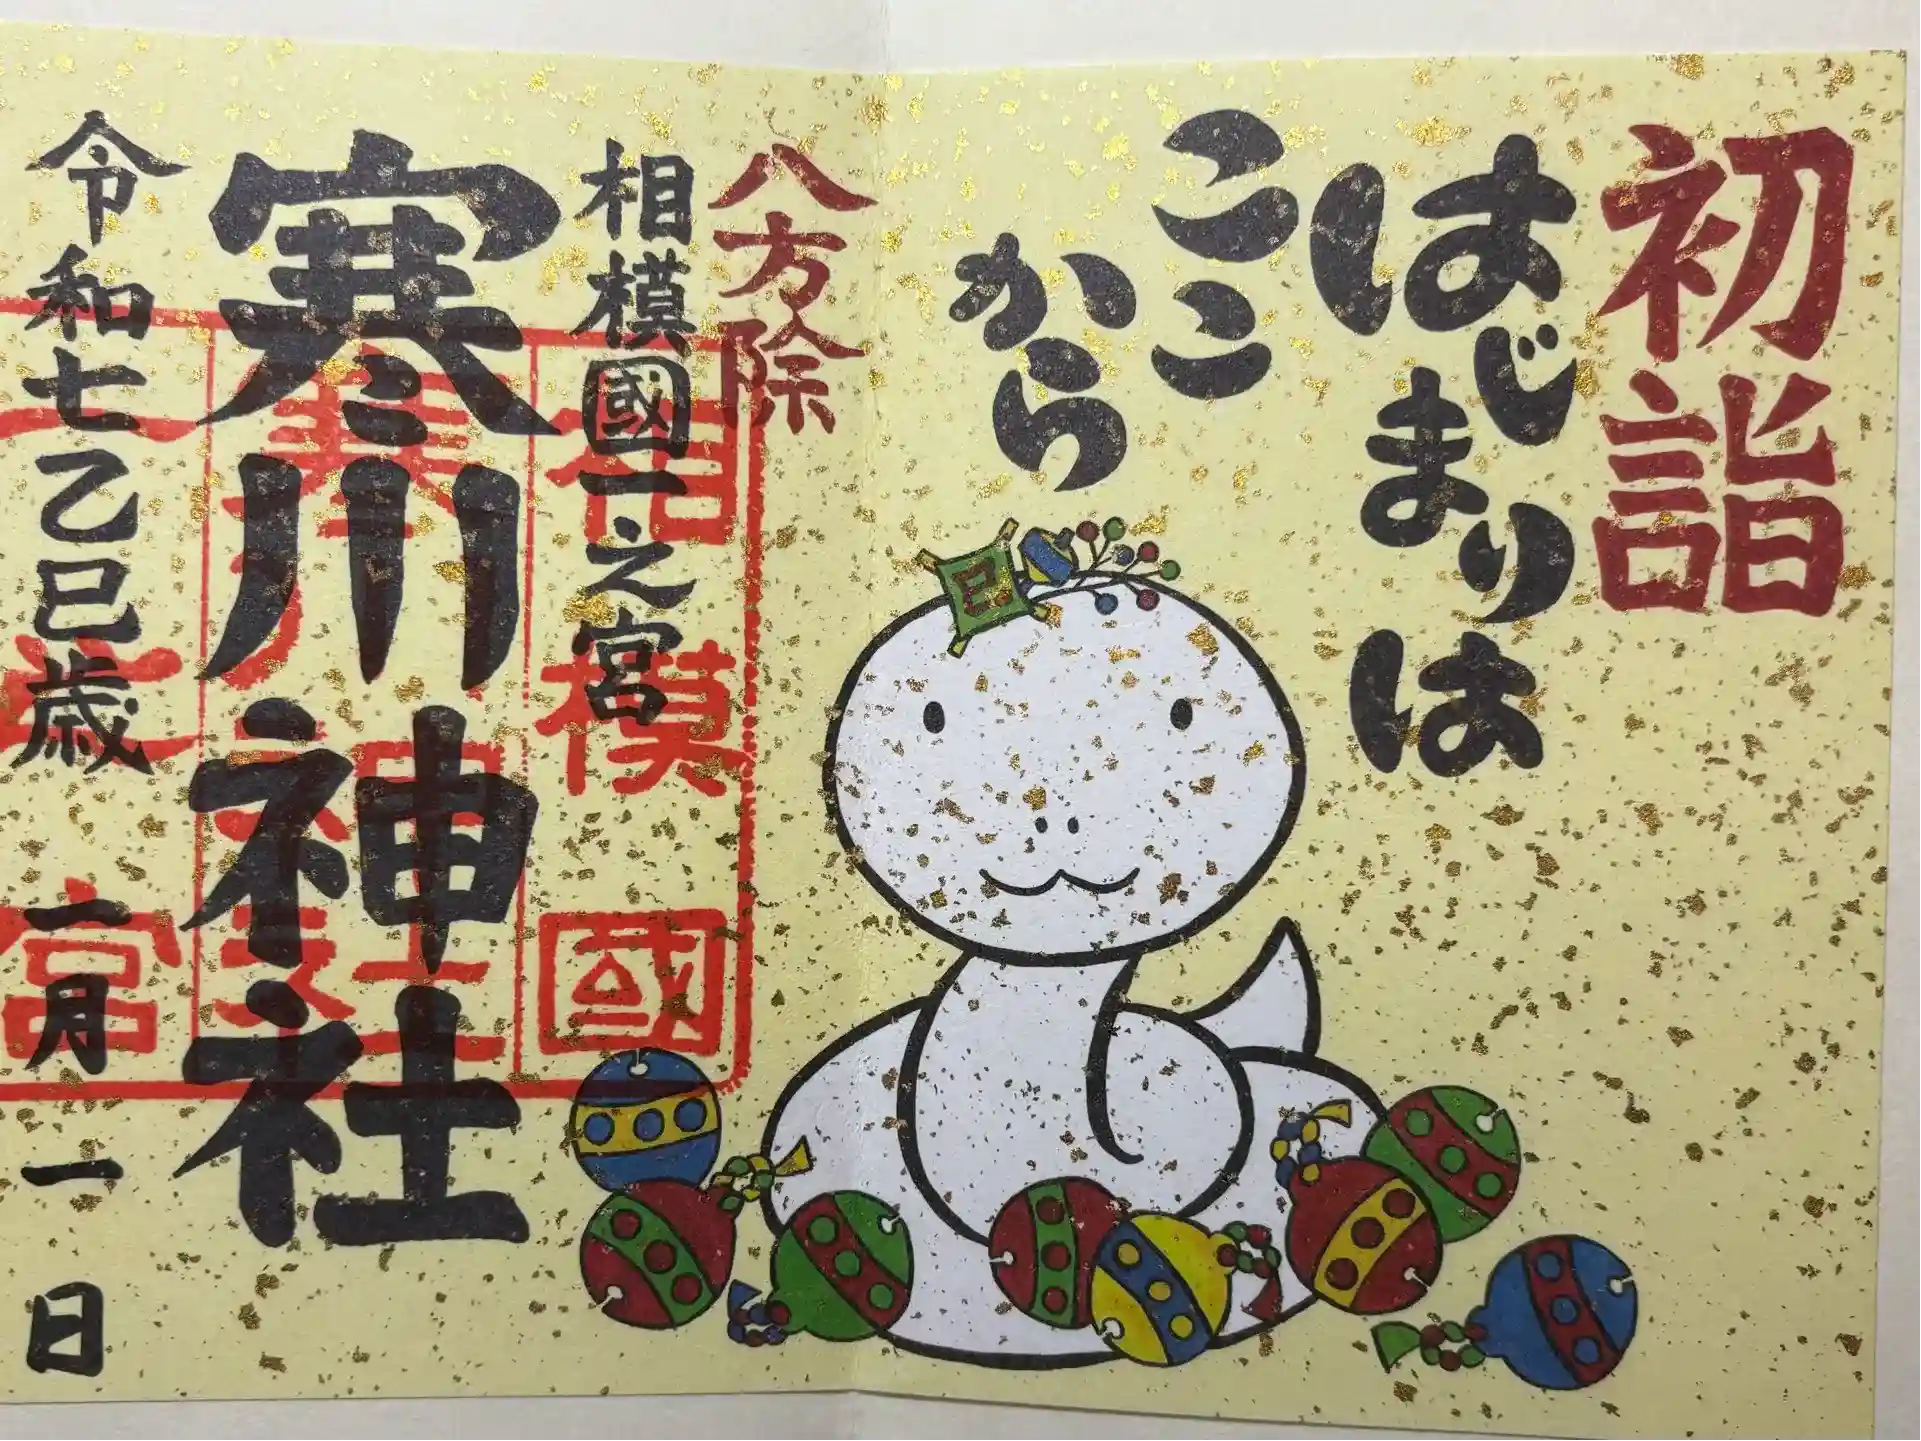 初詣
はじまりは
ここ
から
八方除
相模國一之宮
寒川神社
令和七乙巳歳 一月一日
巳
相模國
寒川神社
一之宮